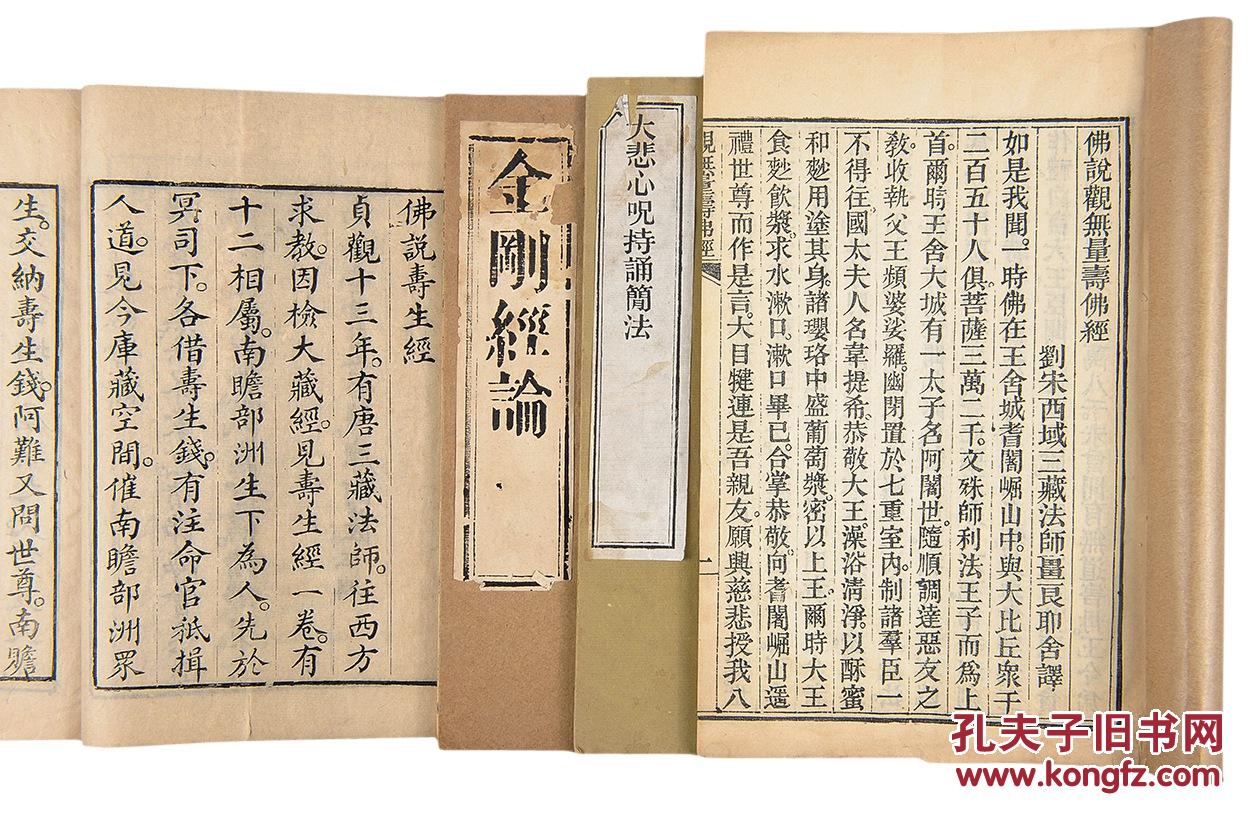 佛說觀無量壽佛經
劉宋西域三藏法師畺良耶舍譯
如是我聞。一時佛在王舍城耆闍崛山中。與大比丘眾千
二百五十人俱。菩薩三萬二千。文殊師利法王子而爲上
首。爾時王舍大城有一太子名阿闍世。隨順調達惡友之
教。收執父王頻婆娑羅。幽閉置於七重室內。制諸羣臣一
不得往。國太夫人名韋提希。恭敬大王。澡浴清淨。以酥蜜
和麨用塗其身。諸瓔珞中盛葡萄漿。密以上王。爾時大王
食麨飲漿。求水漱口。漱口畢已。合掌恭敬。向耆闍崛山遥
禮世尊而作是言。大目犍連是吾親友。願興慈悲授我八
觀無量壽佛經
一
大悲心呪持誦簡法
金剛經論
佛說壽生經
貞觀十三年。有唐三藏法師。往西方
求教。因檢大藏經。見壽生經一卷。有
十二相屬。南瞻部洲生下為人。先於
冥司下。各借壽生錢。有注命官祗揖
人道。見今庫藏空閒。催南瞻部洲眾
生。交納壽生錢。阿難又問世尊。南瞻
孔夫子旧书网
www.kongfz.com